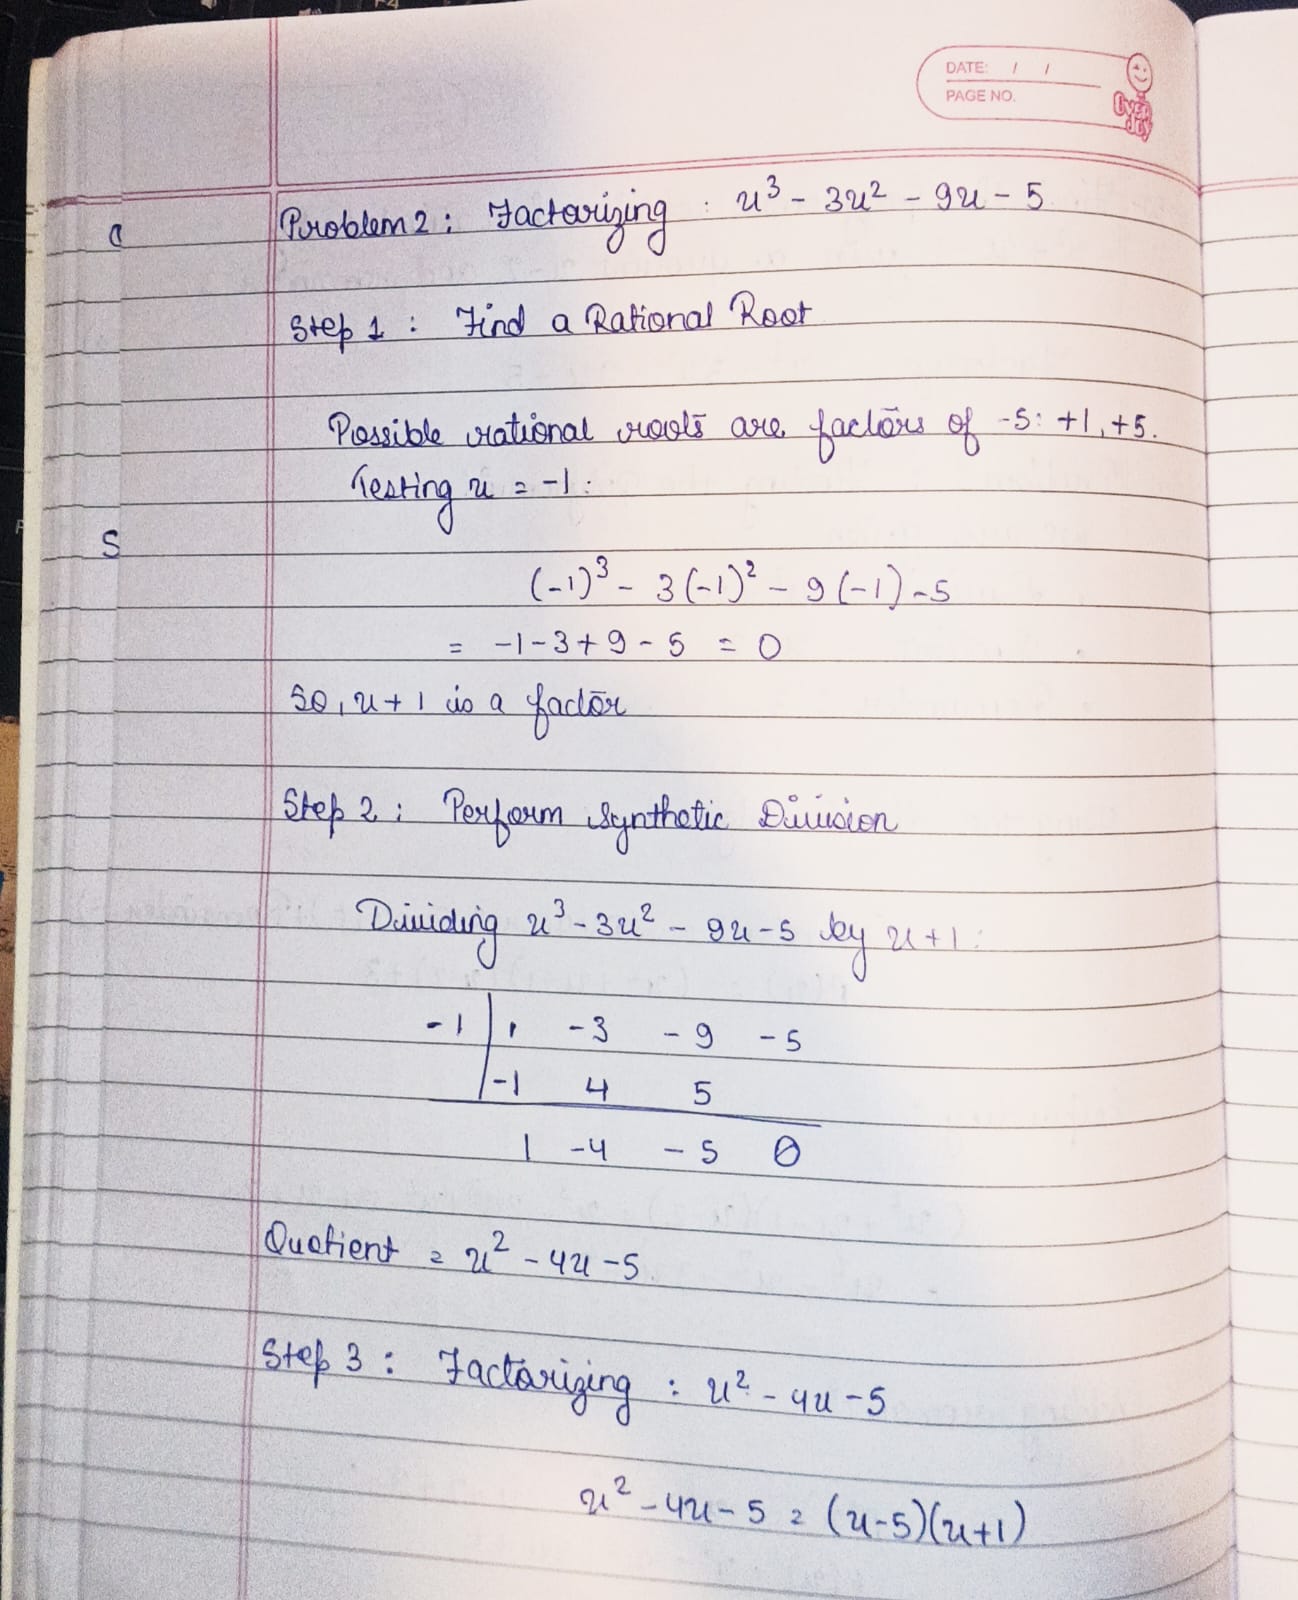 DATE: / /
PAGE NO.
Over Joy
Problem 2 : Factorizing : x³ - 3x² - 9x - 5
Step 1 : Find a Rational Root
Possible rational roots are factors of -5: +1, +5.
Testing x = -1:
(-1)³ - 3(-1)² - 9(-1) - 5
= -1 - 3 + 9 - 5 = 0
So, x + 1 is a factor
S
Step 2 : Perform Synthetic Division
Dividing x³ - 3x² - 9x - 5 by x + 1 :
-1 | 1 -3 -9 -5
| -1 4 5
1 -4 -5 0
Quotient = x² - 4x - 5
Step 3 : Factorizing : x² - 4x - 5
x² - 4x - 5 = (x-5)(x+1)